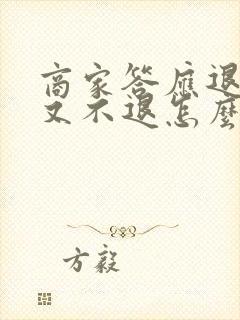 商家答應退
又不退怎麼
方毅